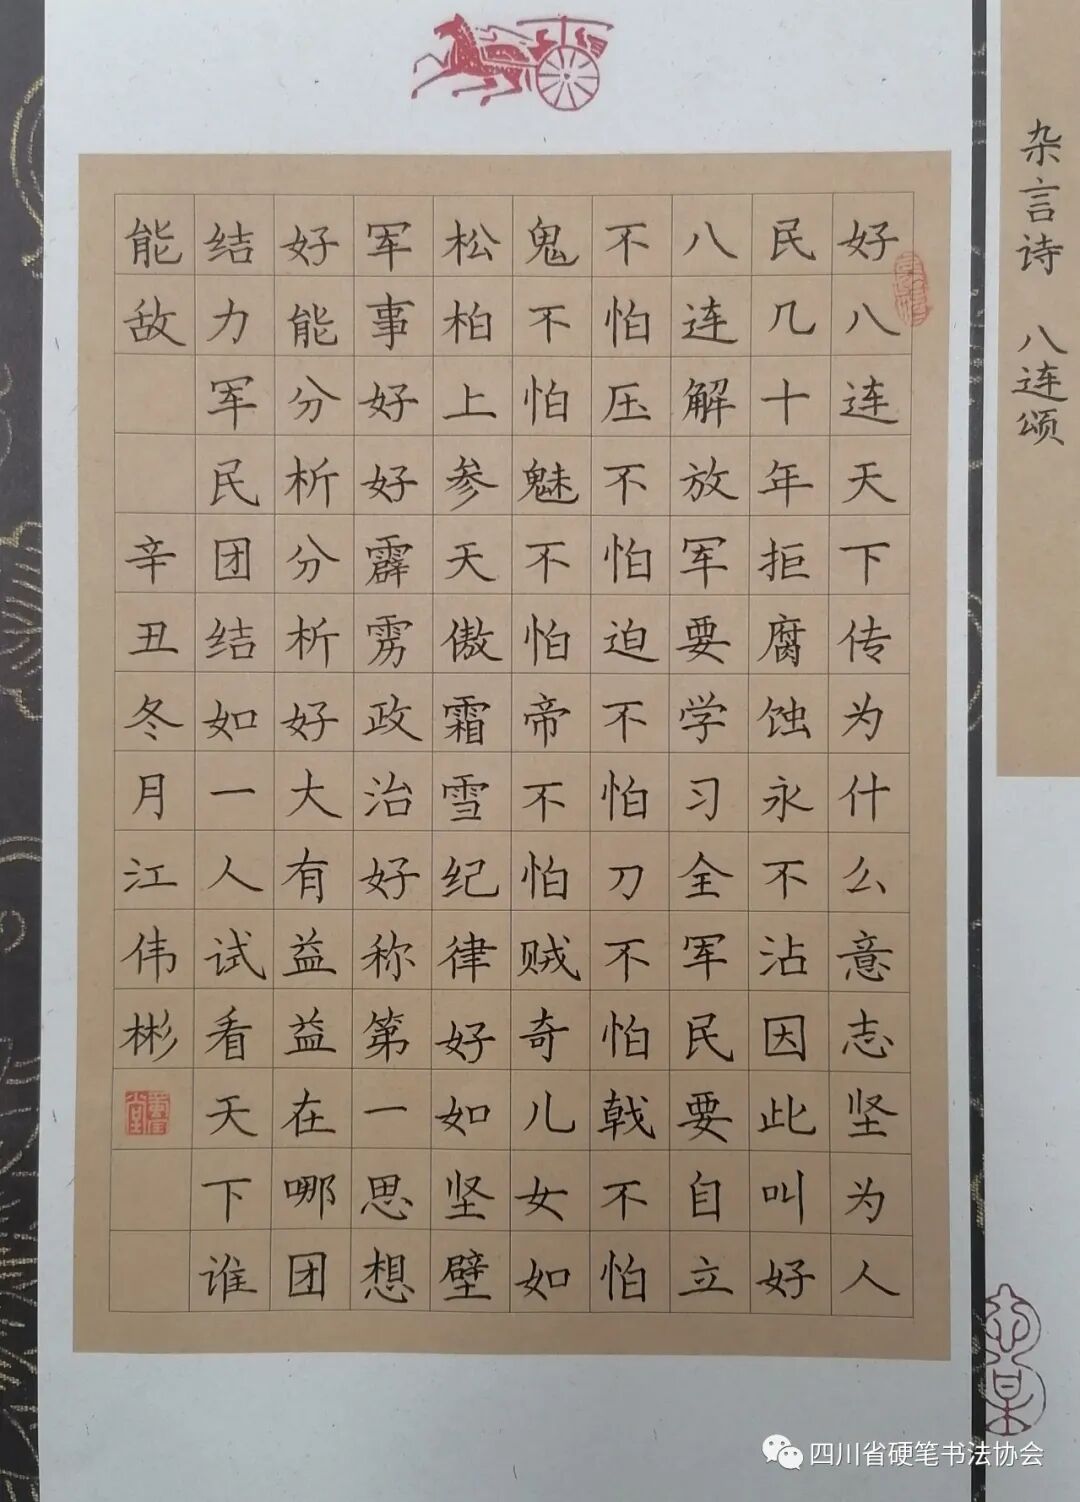 杂言诗 八连颂
好八连天下传为什么意志坚为人
民几十年拒腐蚀永不沾因此叫好
八连解放军要学习全军民要自立
不怕压不怕迫不怕刀不怕戟不怕
鬼不怕魅不怕帝不怕贼奇儿女如
松柏上参天傲霜雪纪律好如坚壁
军事好好霹雳政治好称第一思想
好能分析分析好大有益益在哪团
结力军民团结如一人试看天下谁
能敌 辛丑冬月江伟彬
四川省硬笔书法协会